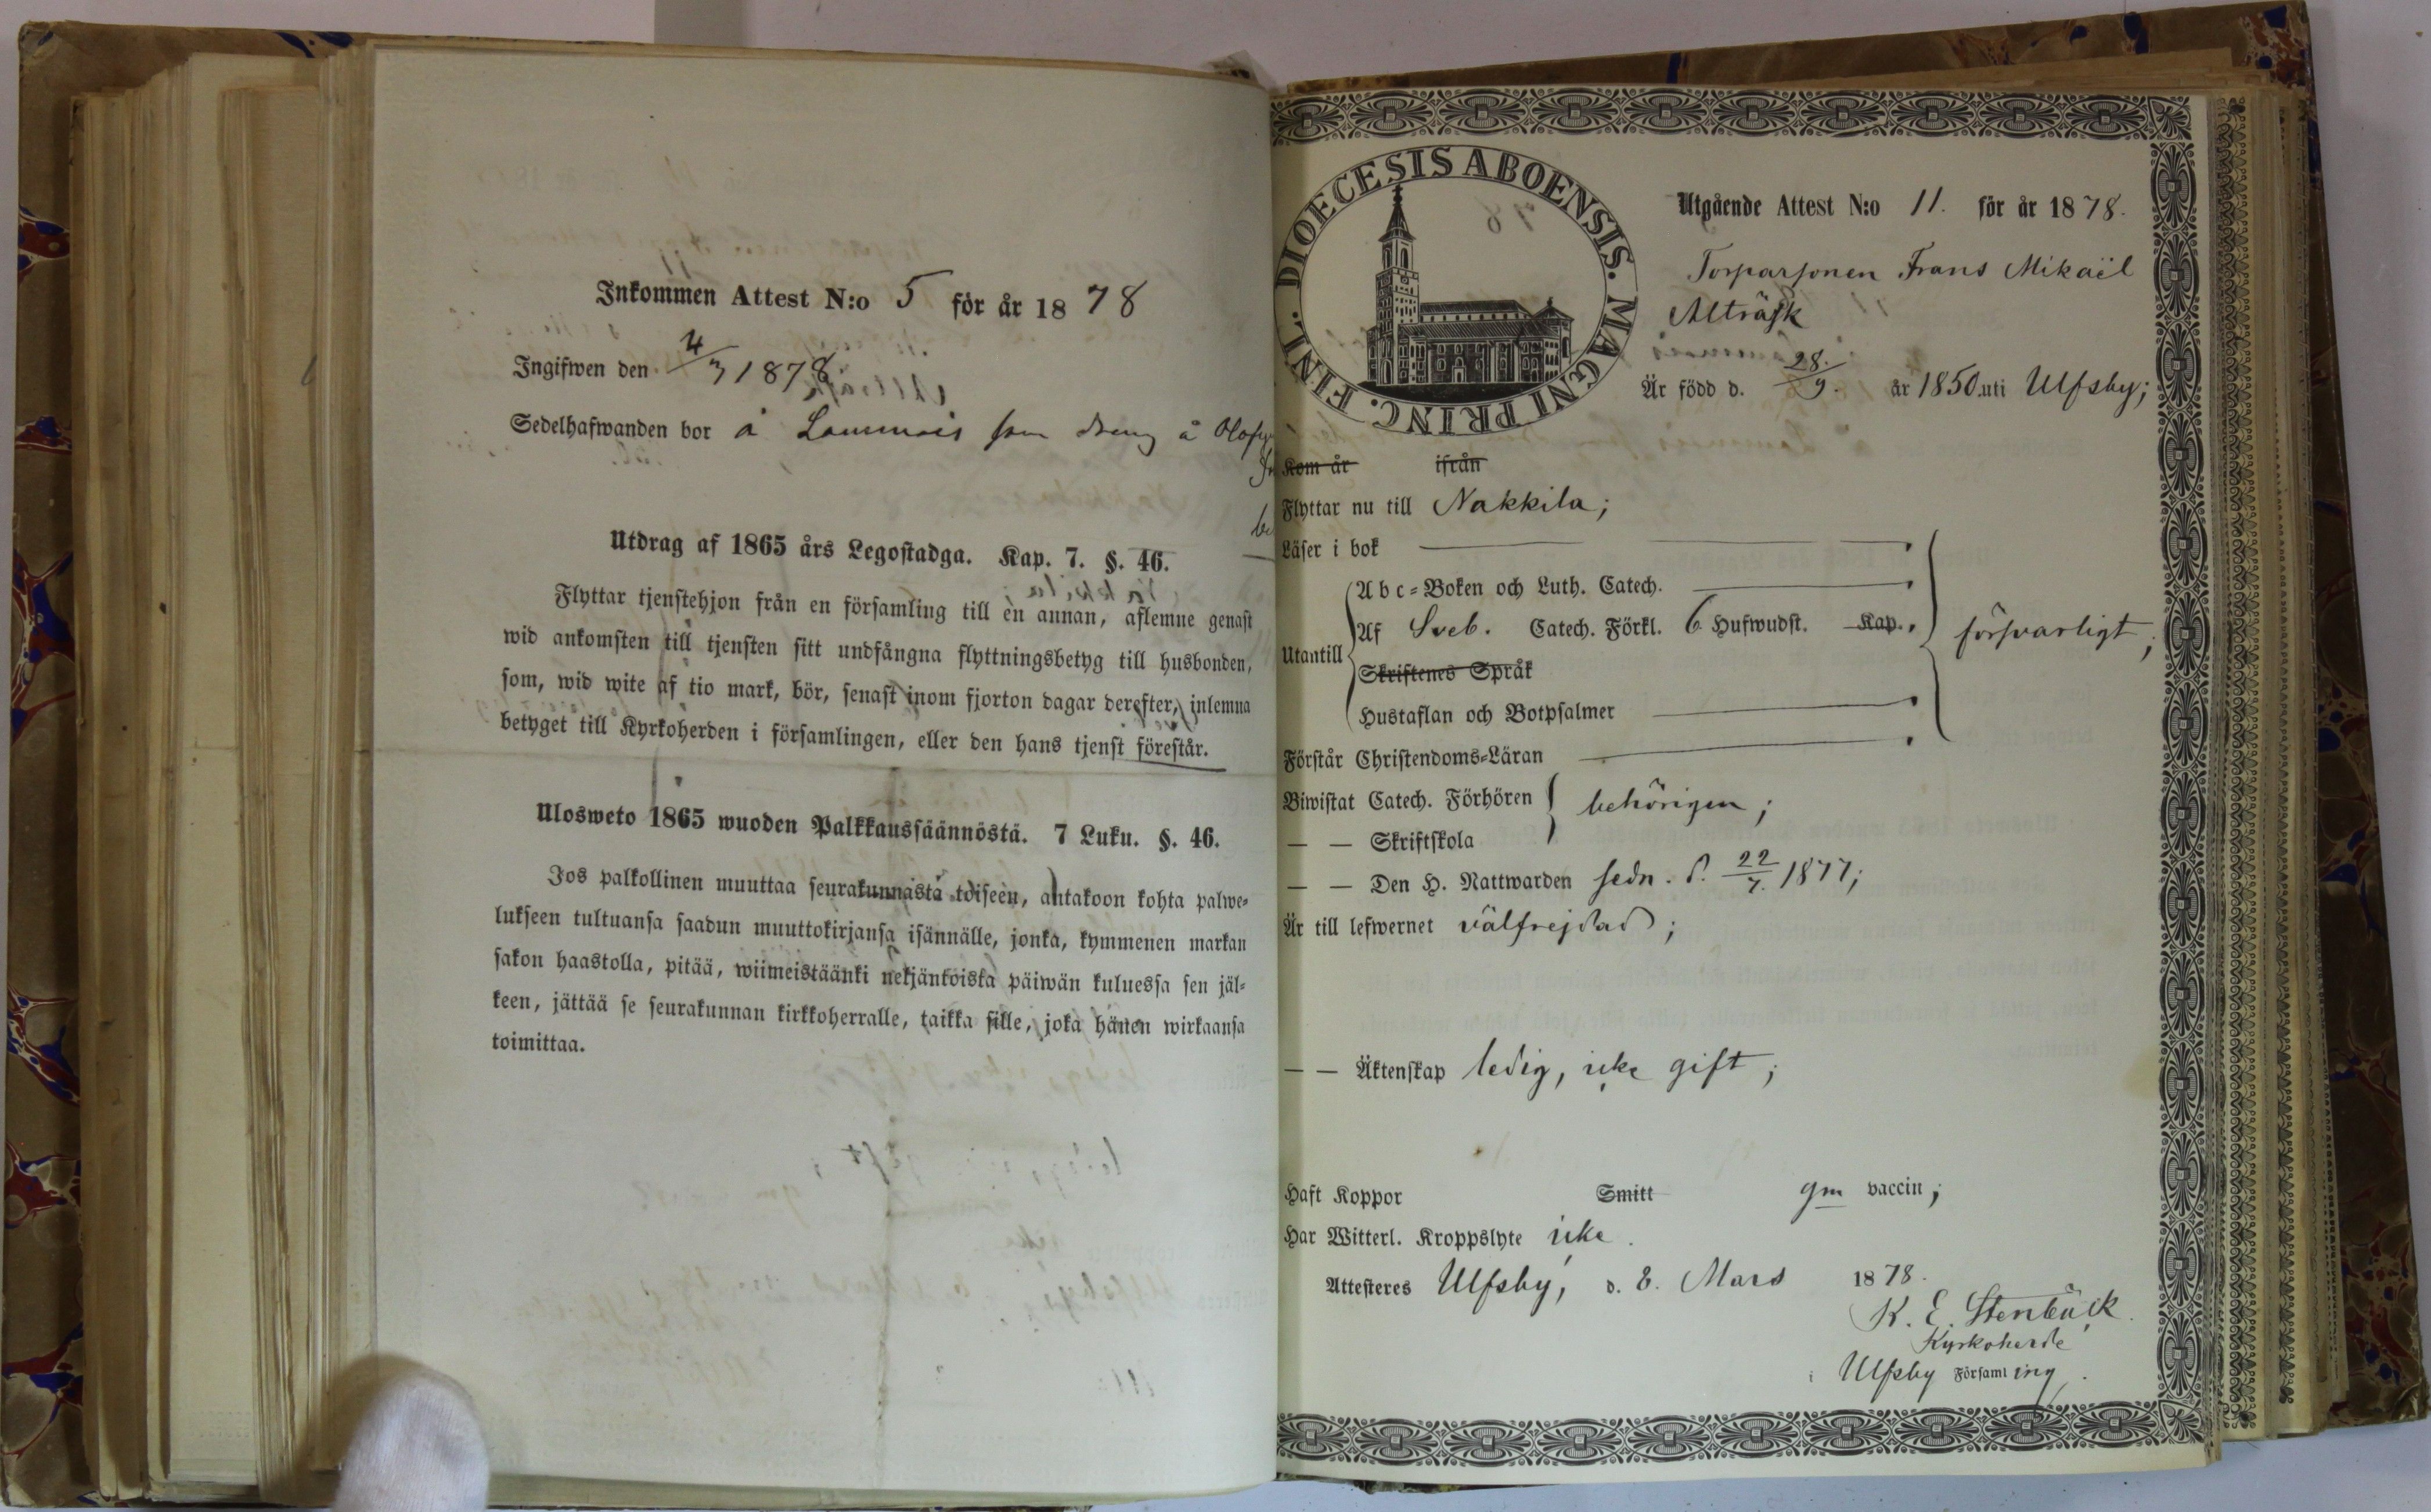 Inkommen Attest N:o 5 för år 1878
Ingifwen den 4/3 1878
Sedelhafwanden bor å Lammais som dreng å
Utdrag af 1865 års Legostadga. Kap. 7. §. 46.
Flyttar tjenstehjon från en församling till en annan, aflemne genast
wid ankomsten till tjensten sitt undfångna flyttningsbetyg till husbonden,
som, wid wite af tio mark, bör, senast inom fjorton dagar derefter, inlemna
betyget till Kyrkoherden i församlingen, eller den hans tjenst förestår.
Ulosweto 1865 wuoden Palkkaussäännöstä. 7 Luku. §. 46.
Jos palkollinen muuttaa seurakunnasta toiseen, antakoon kohta palwe-
lukseen tultuansa saadun muuttokirjansa isännälle, jonka, kymmenen markan
sakon haastolla, pitää, wiimeistäänki neljäntoista päiwän kuluessa sen jäl-
keen, jättää se seurakunnan kirkkoherralle, taikka sille, joka hänen wirkaansa
toimittaa.
DIOECESIS ABOENSIS. MAGNI PRINC. FINL.
Utgående Attest N:o 11. för år 1878.
Torparsonen Frans Mikaël
Alträsk
Är född d. 28./9. år 1850. uti Ulfsby;
Kom år ifrån
Flyttar nu till Nakkila;
Läser i bok
Utantill
Abc-Boken och Luth. Catech.
Af Sveb. Catech. Förkl. 6 Hufwudst. Kap.
Skriftenes Språk
Hustaflan och Botpsalmer
försvarligt;
Förstår Christendoms-Läran
Biwistat Catech. Förhören behörigen;
— — Skriftskola
— — Den H. Nattwarden sedn. d. 22/7. 1877;
Är till lefwernet välfrejdad;
— — Äktenskap ledig, icke gift;
Haft Koppor Smitt gm vaccin;
Har Witterl. Kroppslyte icke.
Attesteres Ulfsby, d. 2. Mars 1878.
K. E. Stenbäck.
Kyrkoherde
i Ulfsby Församling.